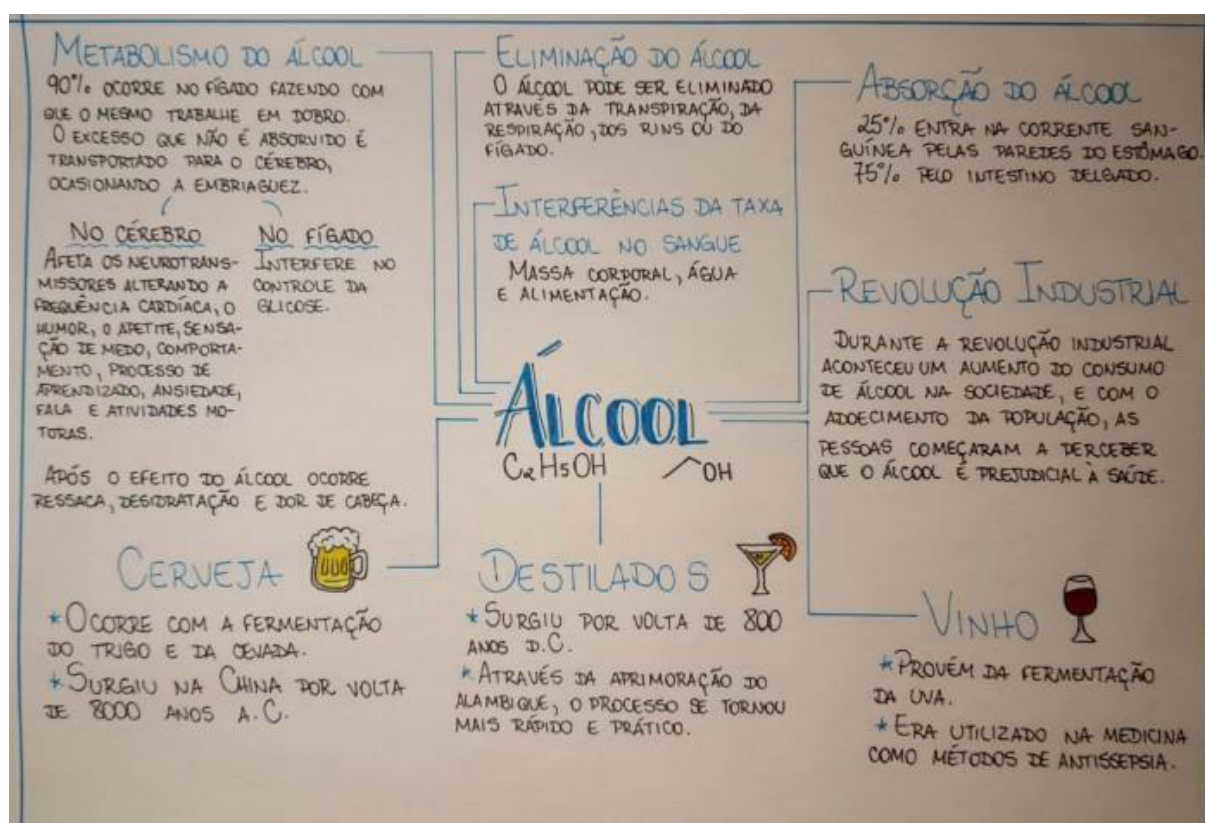 METABOLISMO DO ÁLCOOL
90% OCORRE NO FÍGADO FAZENDO COM
QUE O MESMO TRABALHE EM DOBRO.
O EXCESSO QUE NÃO É ABSORVIDO É
TRANSPORTADO PARA O CÉREBRO,
OCASIONANDO A EMBRIAGUEZ.
NO CÉREBRO
AFETA OS NEUROTRANS-
MISSORES ALTERANDO A
FREQUÊNCIA CARDÍACA, O
HUMOR, O APETITE, SENSA-
ÇÃO DE MEDO, COMPORTA-
MENTO, PROCESSO DE
APRENDIZADO, ANSIEDADE,
FALA E ATIVIDADES MO-
TORAS.
NO FÍGADO
INTERFERE NO
CONTROLE DA
GLICOSE.
APÓS O EFEITO DO ÁLCOOL OCORRE
RESSACA, DESIDRATAÇÃO E DOR DE CABEÇA.
ELIMINAÇÃO DO ÁLCOOL
O ÁLCOOL PODE SER ELIMINADO
ATRAVÉS DA TRANSPIRAÇÃO, DA
RESPIRAÇÃO, DOS RINS OU DO
FÍGADO.
INTERFERÊNCIAS DA TAXA
DE ÁLCOOL NO SANGUE
MASSA CORPORAL, ÁGUA
E ALIMENTAÇÃO.
ABSORÇÃO DO ÁLCOOL
25% ENTRA NA CORRENTE SAN-
GUÍNEA PELAS PAREDES DO ESTÔMAGO.
75% PELO INTESTINO DELGADO.
REVOLUÇÃO INDUSTRIAL
DURANTE A REVOLUÇÃO INDUSTRIAL
ACONTECEU UM AUMENTO DO CONSUMO
DE ÁLCOOL NA SOCIEDADE, E COM O
ADOECIMENTO DA POPULAÇÃO, AS
PESSOAS COMEÇARAM A PERCEBER
QUE O ÁLCOOL É PREJUDICIAL À SAÚDE.
ÁLCOOL
C2H5OH OH
CERVEJA
* OCORRE COM A FERMENTAÇÃO
DO TRIGO E DA CEVADA.
* SURGIU NA CHINA POR VOLTA
DE 8000 ANOS A.C.
DESTILADOS
* SURGIU POR VOLTA DE 800
ANOS D.C.
* ATRAVÉS DA APRIMORAÇÃO DO
ALAMBIQUE, O PROCESSO SE TORNOU
MAIS RÁPIDO E PRÁTICO.
VINHO
* PROVÉM DA FERMENTAÇÃO
DA UVA.
* ERA UTILIZADO NA MEDICINA
COMO MÉTODOS DE ANTISSEPSIA.